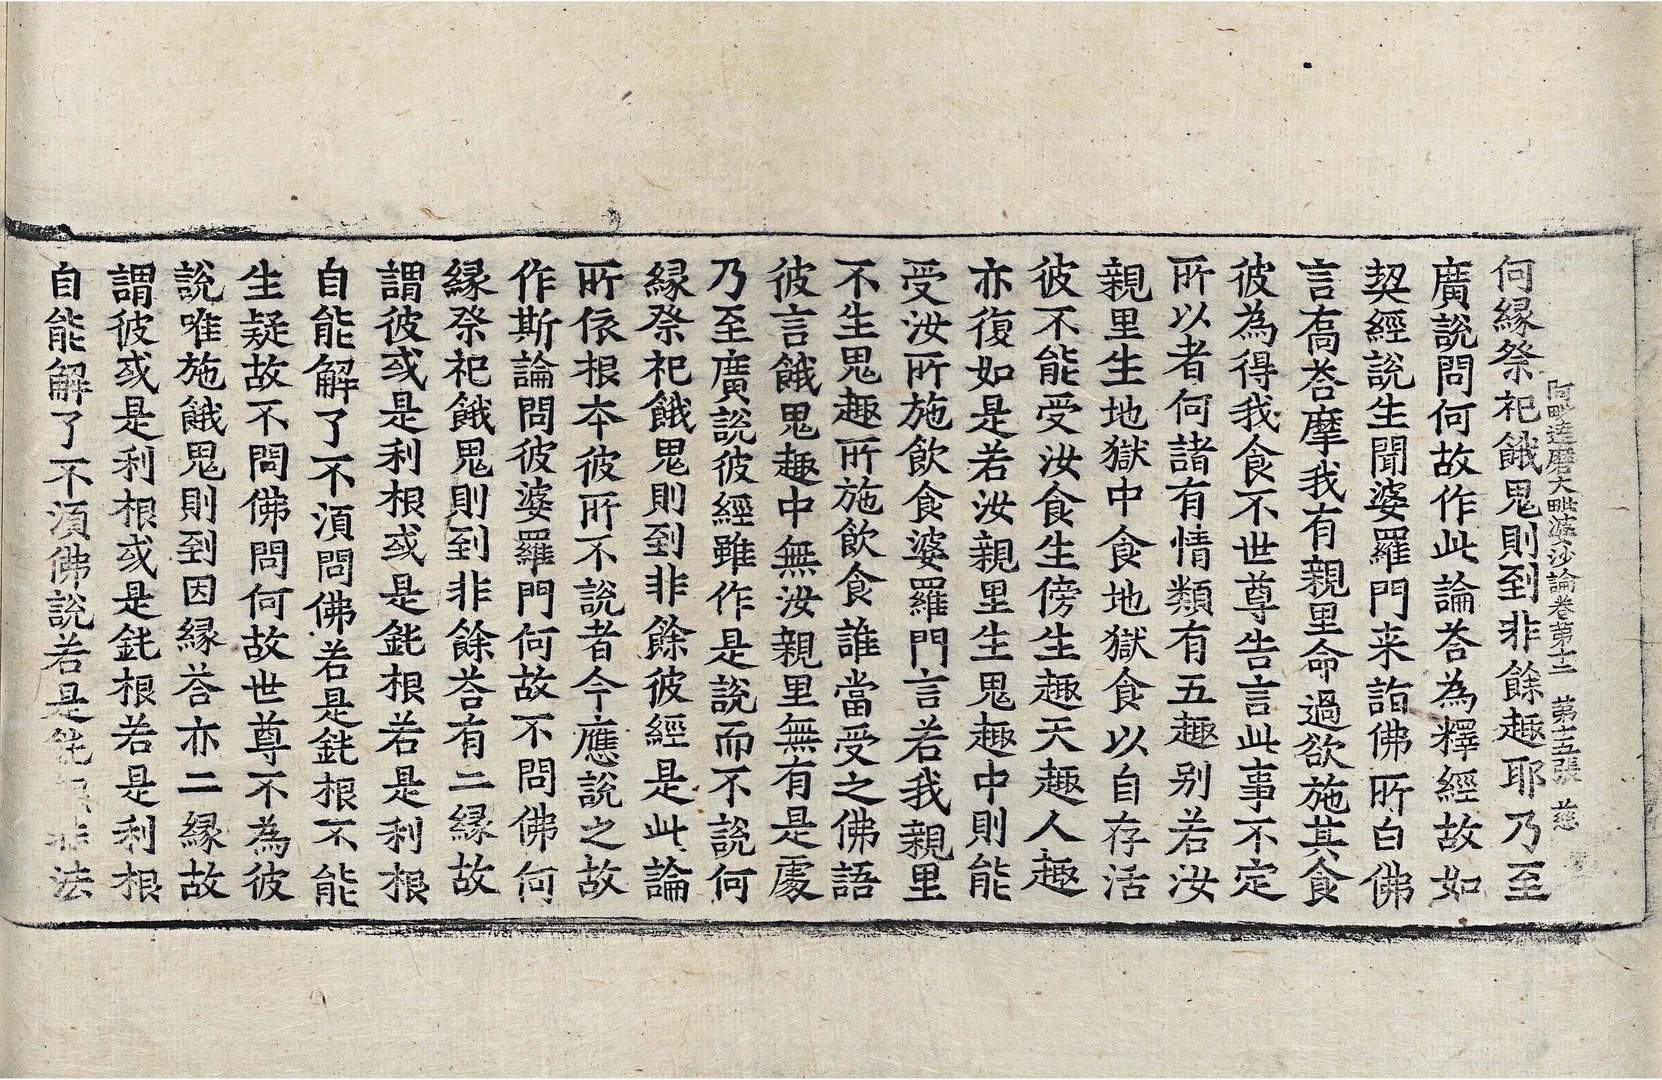 阿毗達磨大毗婆沙論卷第十二 第十五張 慈
何緣祭祀餓鬼則到非餘趣耶乃至
廣說問何故作此論荅為釋經故如
契經說生聞婆羅門来詣佛所白佛
言喬荅摩我有親里命過欲施其食
彼為得我食不世尊告言此事不定
所以者何諸有情類有五趣别若汝
親里生地獄中食地獄食以自存活
彼不能受汝食生傍生趣天趣人趣
亦復如是若汝親里生鬼趣中則能
受汝所施飲食婆羅門言若我親里
不生鬼趣所施飲食誰當受之佛語
彼言餓鬼趣中無汝親里無有是處
乃至廣說彼經雖作是說而不說何
緣祭祀餓鬼則到非餘彼經是此論
所依根本彼所不說者今應說之故
作斯論問彼婆羅門何故不問佛何
緣祭祀餓鬼則到非餘荅有二緣故
謂彼或是利根或是鈍根若是利根
自能解了不湏問佛若是鈍根不能
生疑故不問佛問何故世尊不為彼
說唯施餓鬼則到因緣荅亦二緣故
謂彼或是利根或是鈍根若是利根
自能解了不湏佛說若是鈍根非法